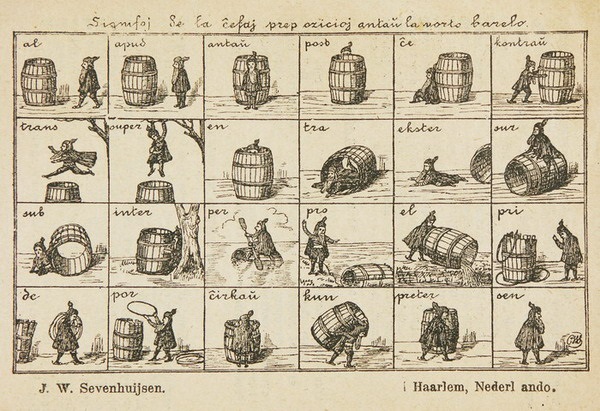 Signifoj de la ĉefaj prepozicioj antaŭ la vorto barelo.
al apud antaŭ post ĉe kontraŭ
trans super en tra ekster sur
sub inter per pro el pri
de por ĉirkaŭ kun preter sen
J. W. Sevenhuijsen. i Haarlem, Nederl ando.